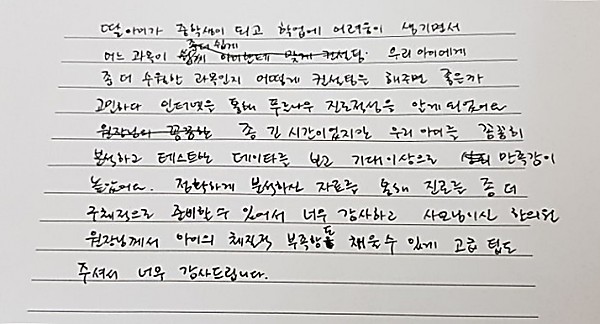 딸아이가 중학생이 되고 학업에 어려움이 생기면서
어느 과목이 좀더 쉽게 우리 아이에게
좀 더 수월한 과목인지 어떻게 컨설팅을 해주면 좋은가
고민하다 인터넷을 통해 푸르나우 진로적성을 알게 되었어요
좀 긴 시간이었지만 우리 아이를 꼼꼼히
분석하고 테스트한 데이타를 보고 기대 이상으로 만족감이
높았어요. 정확하게 분석하신 자료를 통해 진로를 좀 더
구체적으로 준비할 수 있어서 너무 감사하고 사모님이신 한의원
원장님께서 아이의 체질적 부족함도 채울 수 있게 고급 팁도
주셔서 너무 감사드립니다.